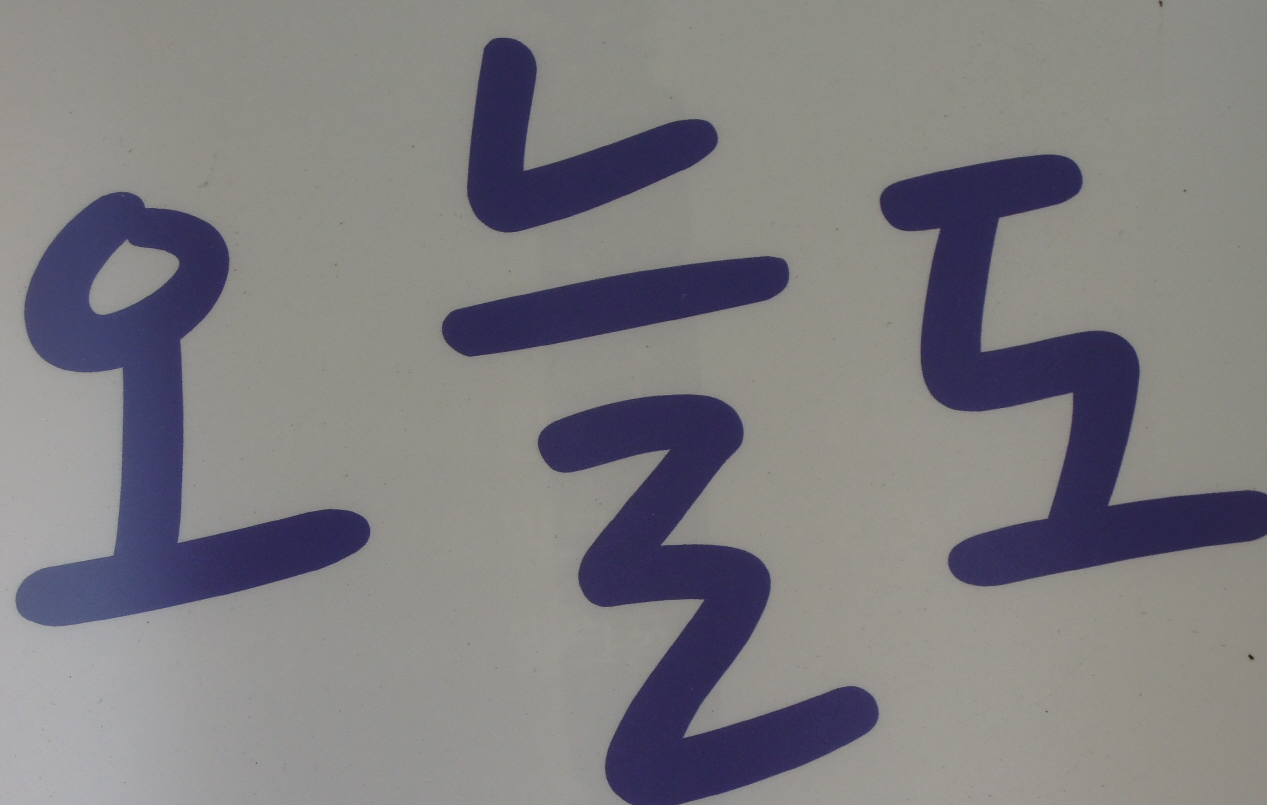 오늘도